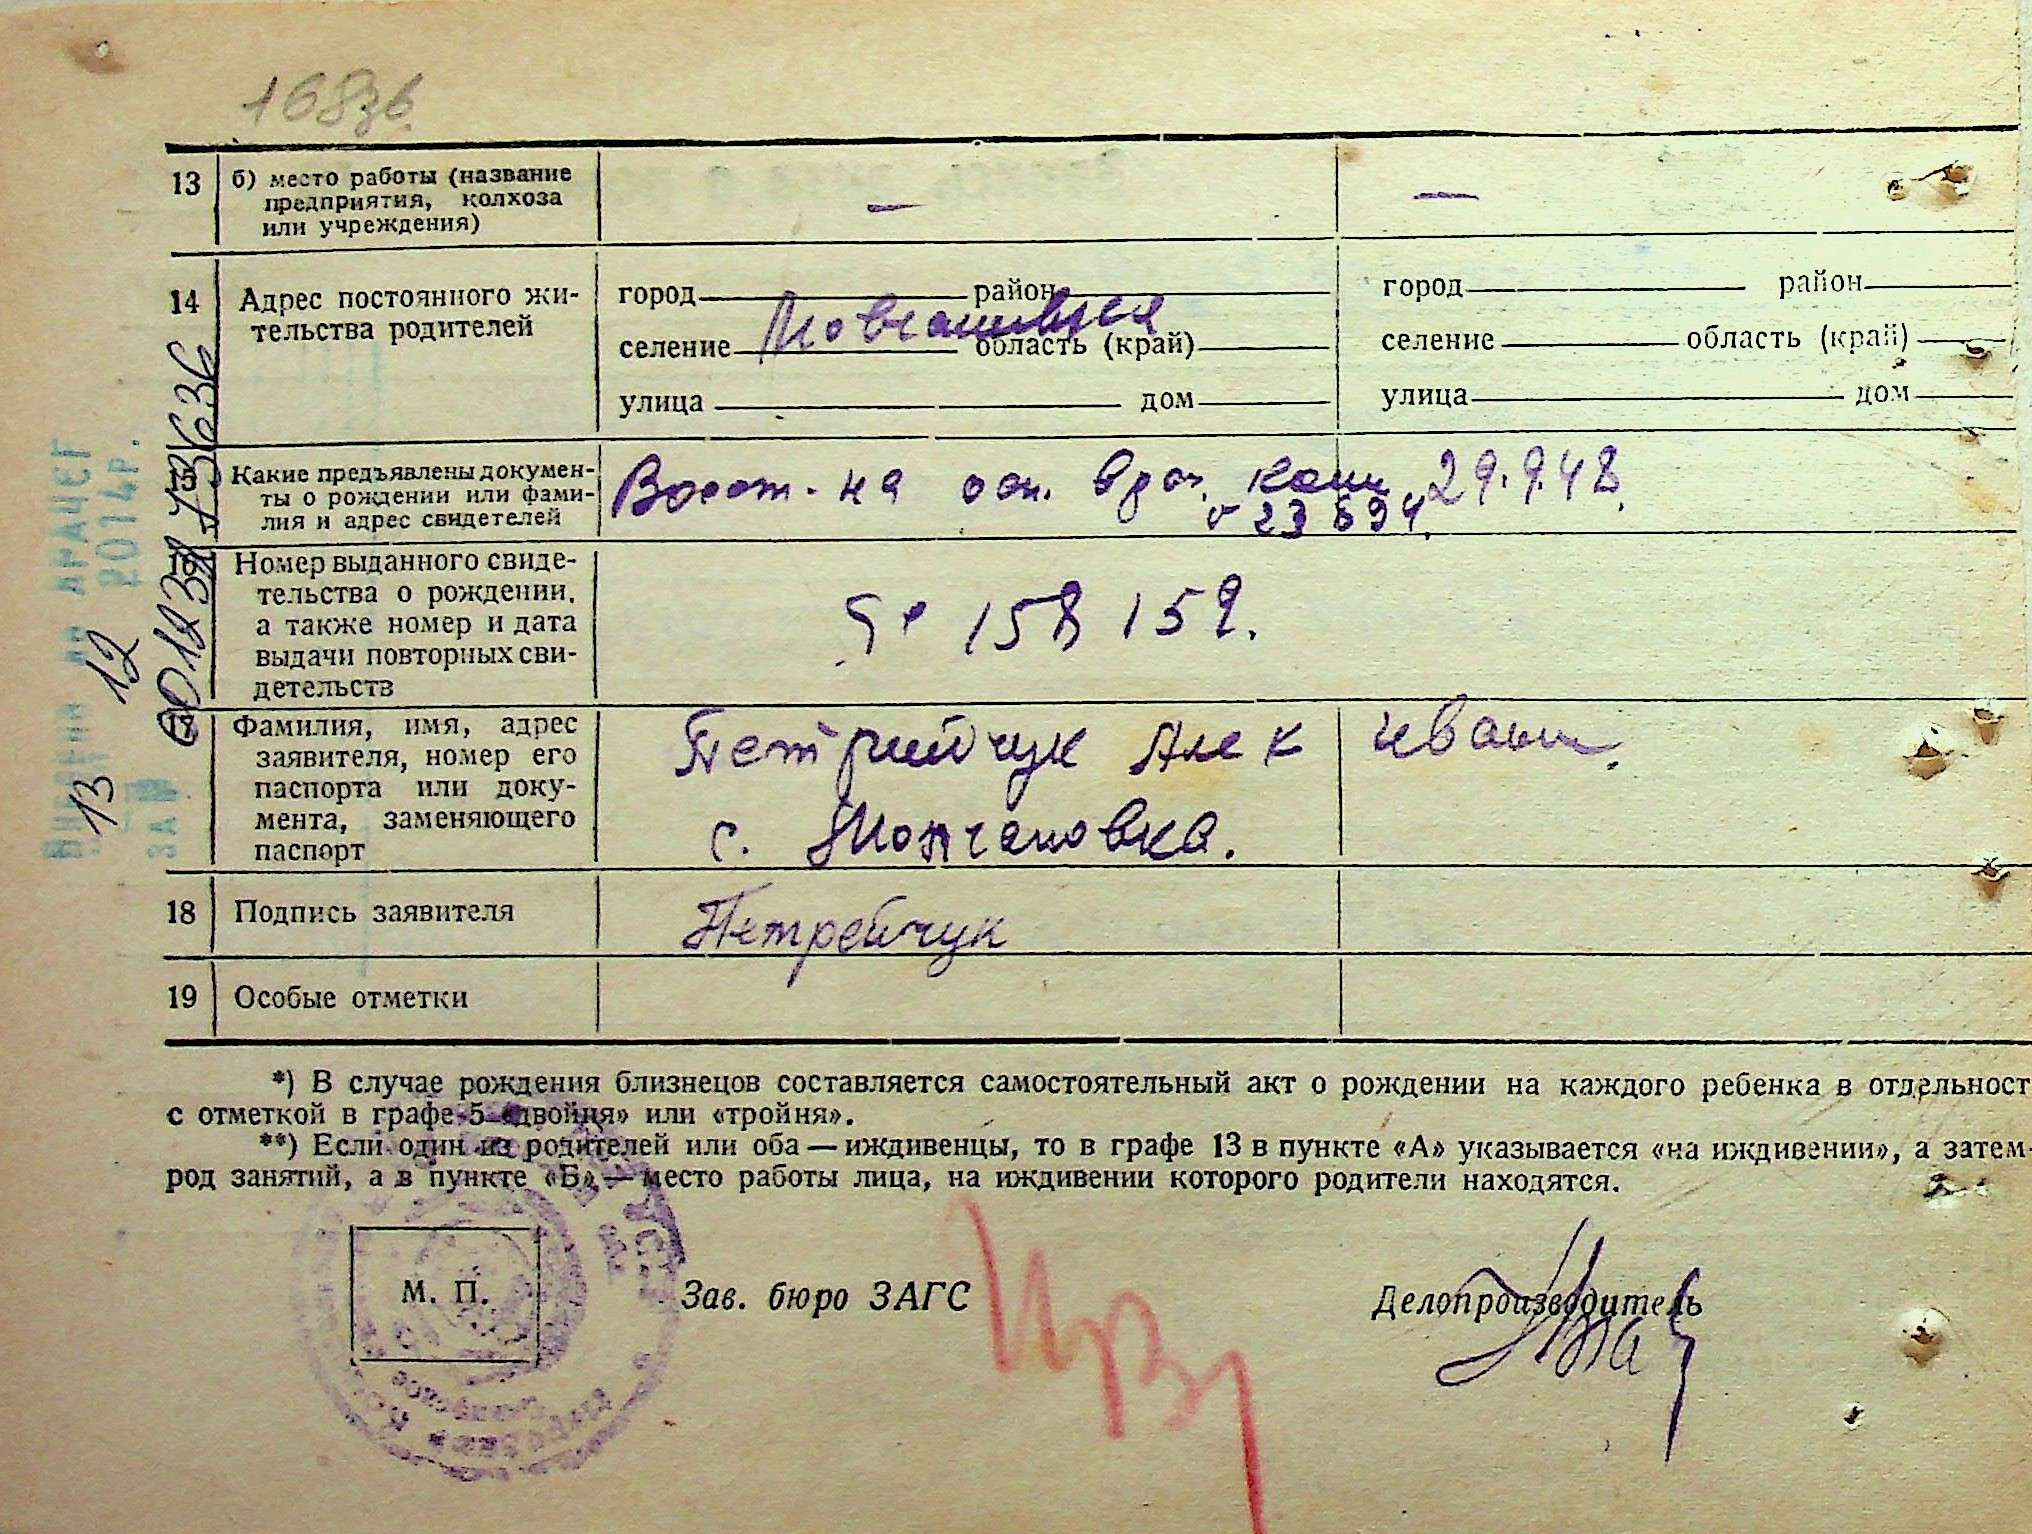 168зв.
13 б) место работы (название — —
предприятия, колхоза
или учреждения)
14 Адрес постоянного жи-
тельства родителей
город район
селение область (край)
улица дом
город район
селение область (край)
улица дом
15 Какие предъявлены докумен-
ты о рождении или фами-
лия и адрес свидетелей
Восст. на осн. врач. 29.9.48
16 Номер выданного свиде-
тельства о рождении,
а также номер и дата
выдачи повторных сви-
детельств
158 159.
17 Фамилия, имя, адрес
заявителя, номер его
паспорта или доку-
мента, заменяющего
паспорт
Петрийчук Алек Иван.
с. Молчановка.
18 Подпись заявителя Петрейчук
19 Особые отметки
*) В случае рождения близнецов составляется самостоятельный акт о рождении на каждого ребенка в отдельност
с отметкой в графе 5 «двойня» или «тройня».
**) Если один из родителей или оба — иждивенцы, то в графе 13 в пункте «А» указывается «на иждивении», а затем
род занятий, а в пункте «Б» — место работы лица, на иждивении которого родители находятся.
М. П. Зав. бюро ЗАГС Делопроизводитель
13 12
2014р.